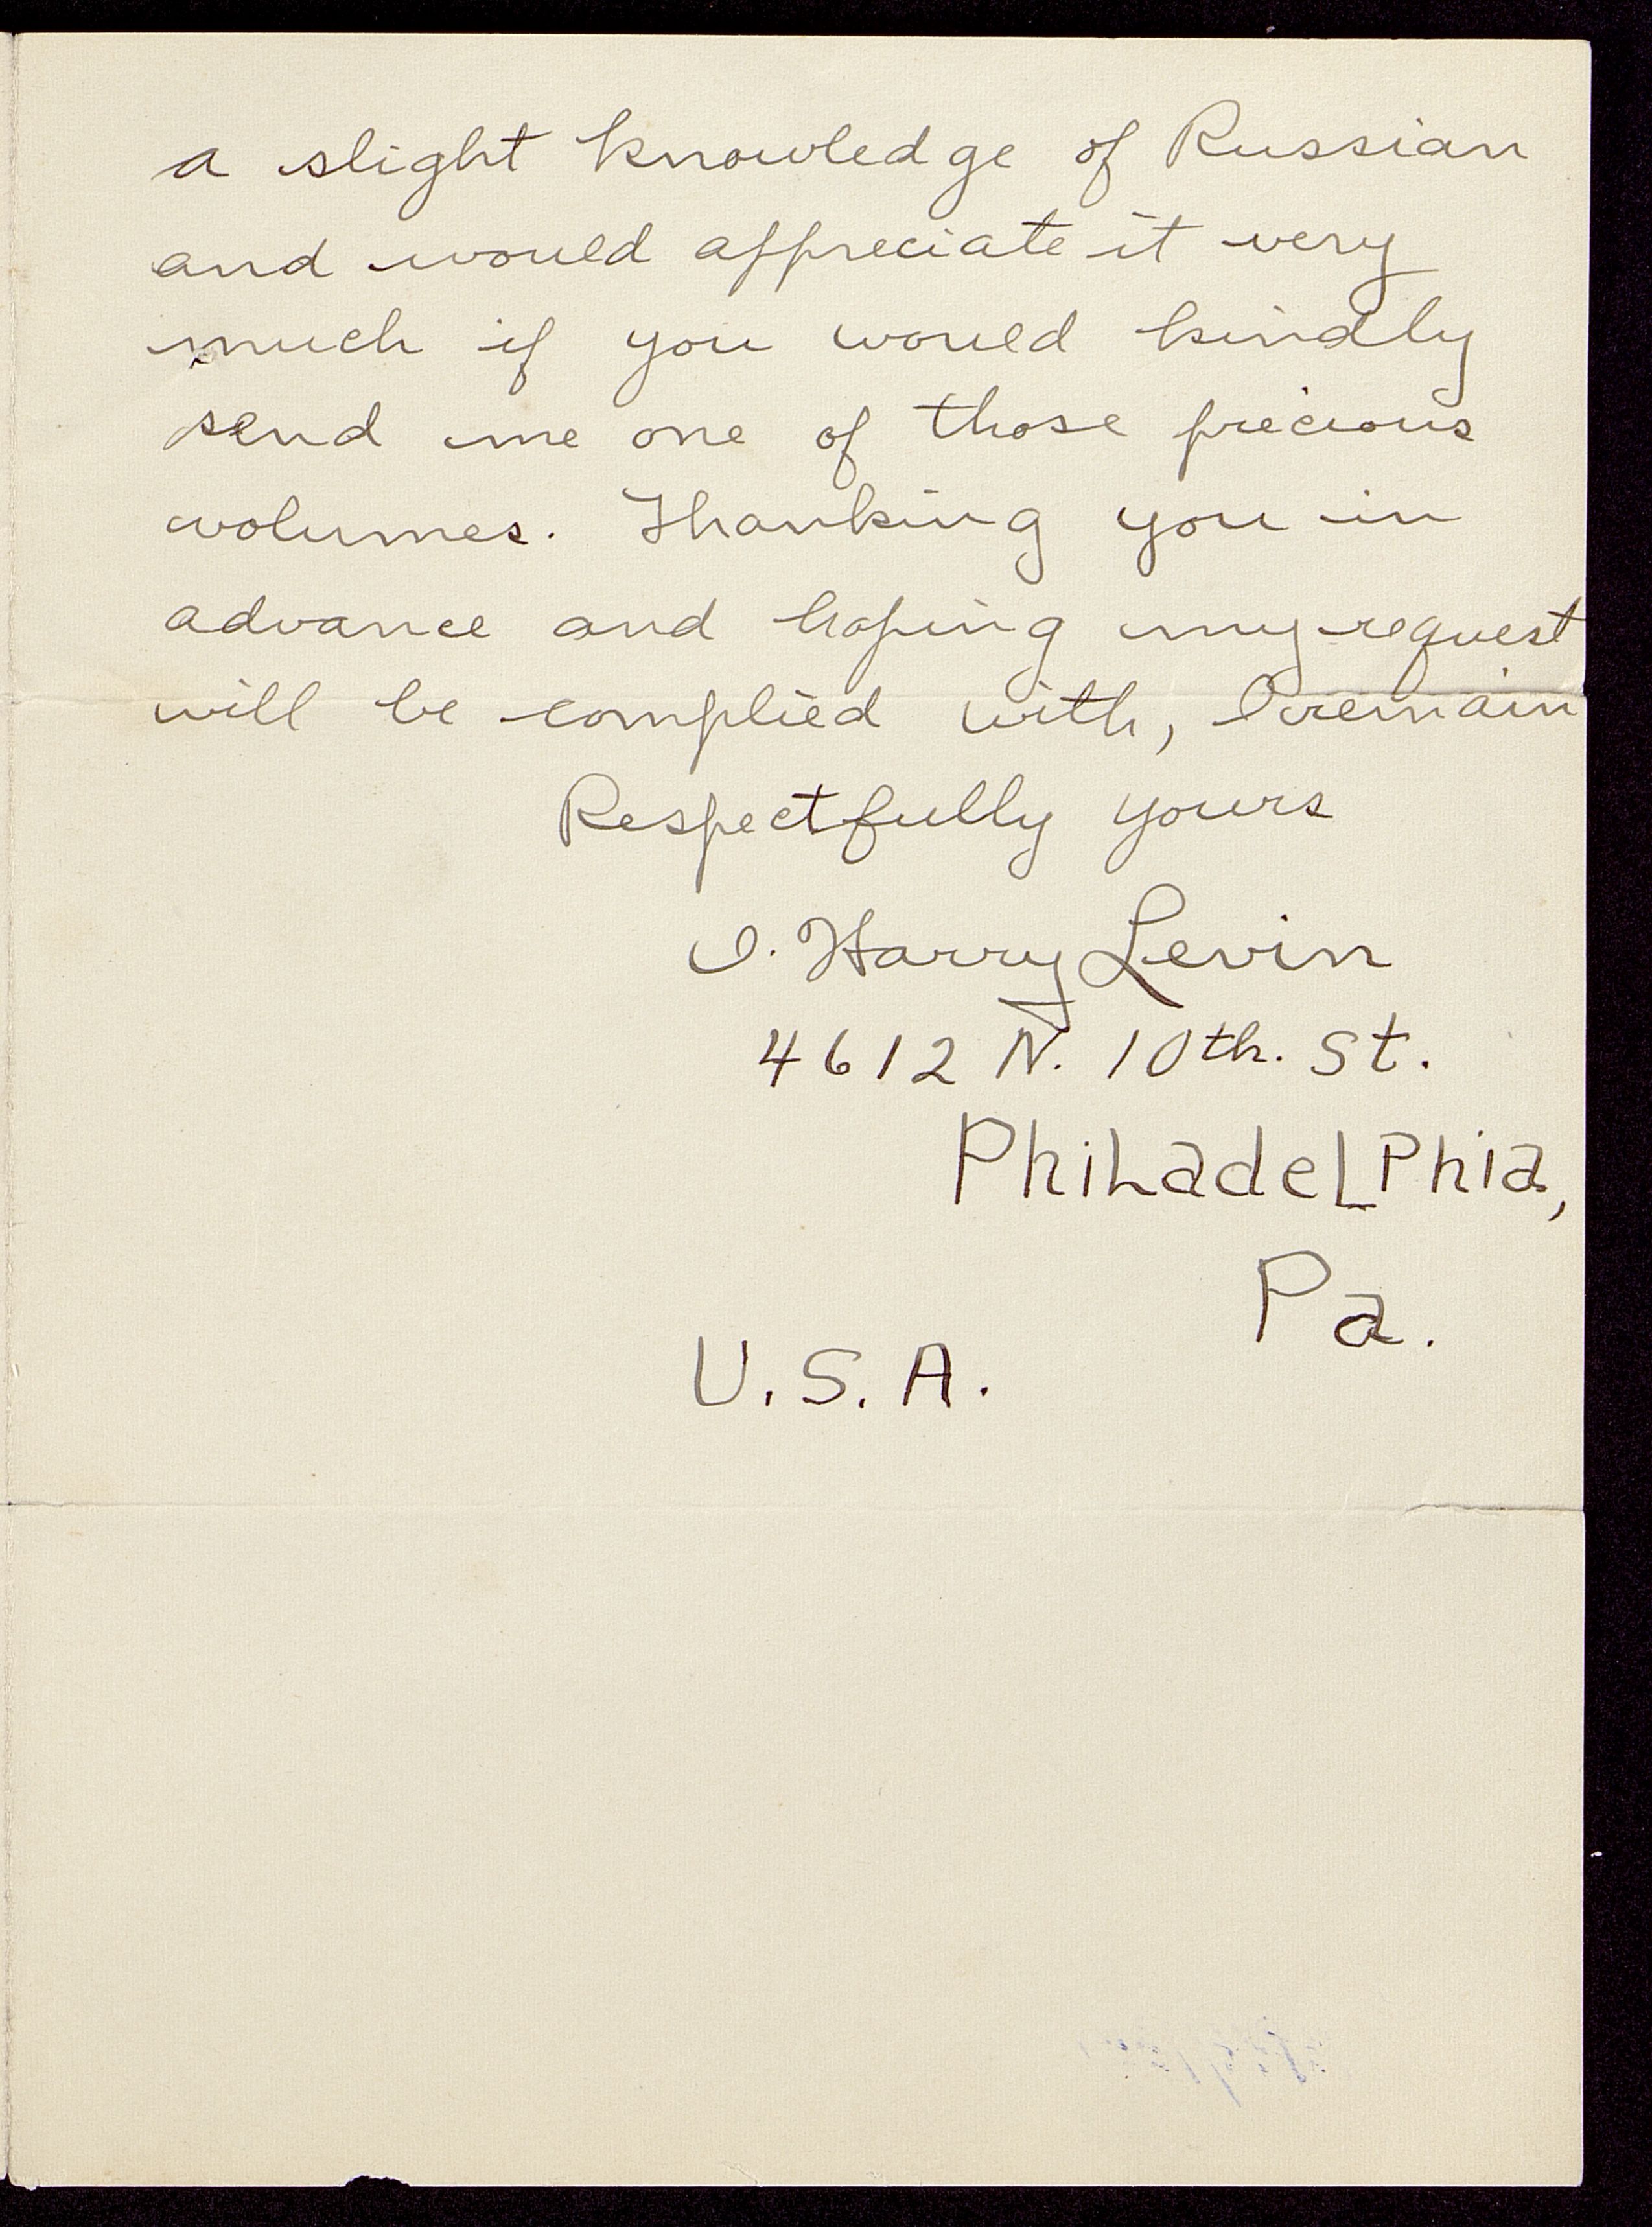 a slight knowledge of Russian
and would appreciate it very
much if you would kindly
send me one of those precious
volumes. Thanking you in
advance and hoping my request
will be complied with, I remain
Respectfully yours
I. Harry Levin
4612 N. 10th. St.
Philadelphia,
Pa.
U.S.A.